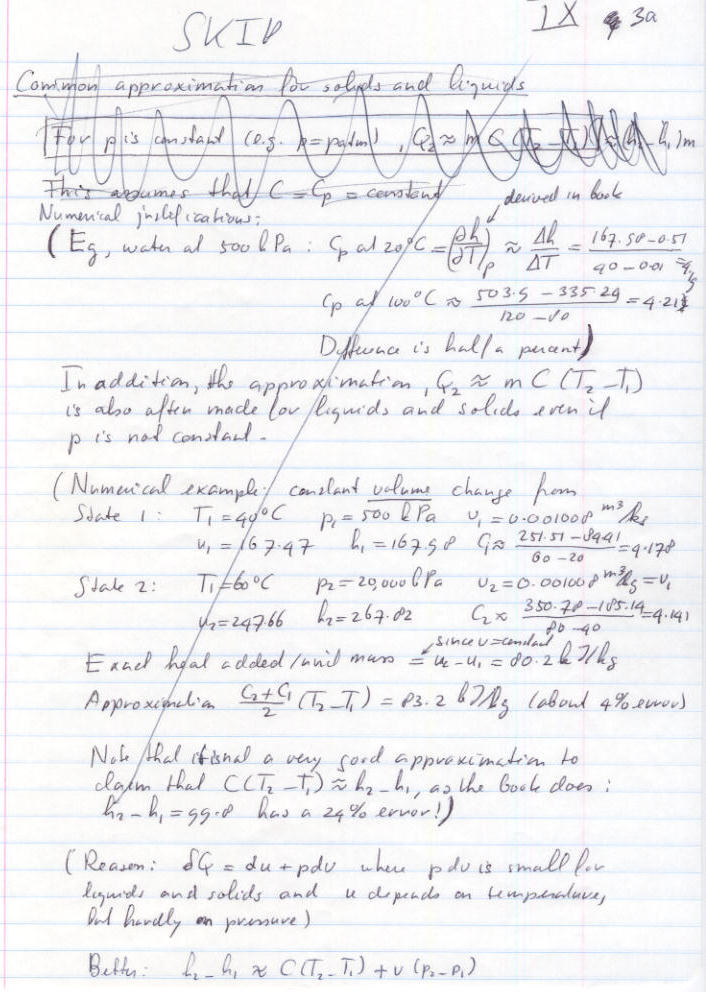 SKIP
IX 3a
Common approximation for solids and liquids
For p is constant (e.g. p=patm), Q₂ ≈ m C (T₂-T₁) ≈ (h₂-h₁)m
This assumes that C = Cp = constant
derived in book
Numerical justifications:
(Eg, water at 500 kPa : Cp at 20°C = (∂h/∂T)p ≈ Δh/ΔT = (167.58-0.51)/(40-0.01) =
Cp at 100°C ≈ (503.5 - 335.24)/(120 - 80) = 4.21
Difference is half a percent)
In addition, the approximation, Q₂ ≈ m C (T₂-T₁)
is also often made for liquids and solids even if
p is not constant.
(Numerical example: constant volume change from
State 1 : T₁=40°C p₁=500 kPa v₁=0.001008 m³/kg
u₁=167.47 h₁=167.98 C₁≈ (251.51-84.41)/(60-20) =4.178
State 2: T₁=60°C p₂=20,000kPa v₂=0.001008 m³/kg=v₁
u₂=247.66 h₂=267.82 C₂≈ (350.78-185.14)/(80-40) =4.141
since v=constant
Exact heat added/unit mass = u₂-u₁ = 80.2 kJ/kg
Approximation (C₂+C₁)/2 (T₂-T₁) = 83.2 kJ/kg (about 4% error)
Note that it is not a very good approximation to
claim that C(T₂-T₁) ≈ h₂-h₁, as the book does :
h₂-h₁ = 99.8 has a 24% error!)
(Reason: δQ = du + pdv where pdv is small for
liquids and solids and u depends on temperature,
but hardly on pressure)
Better: h₂-h₁ ≈ C(T₂-T₁) + v (p₂-p₁)